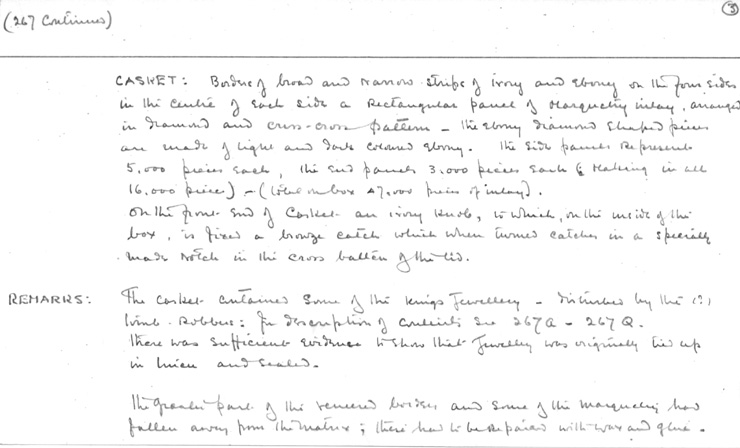 (267 Continued)
3
CASKET: Border of broad and narrow stripes of ivory and ebony on the four sides
in the centre of each side a rectangular panel of Marquetry inlay, arranged
in diamond and criss-cross pattern – the ebony diamond shaped pieces
are made of light and dark coloured ebony. The side panels represent
5,000 pieces each, the end panels 3,000 pieces each (Making in all
16,000 piece) – (total on box 47,000 pieces of inlay).
On the front end of casket an ivory knob, to which, on the inside of the
box, is fixed a bronze catch which when turned catches in a specially
made notch in the cross batten of the lid.
REMARKS: The casket contained some of the Kings Jewellery – disturbed by the (?)
tomb-robbers: for description of contents see 267A – 267Q.
There was sufficient evidence to show that Jewellery was originally tied up
in linen and sealed.
The greater part of the veneered borders and some of the marquetry had
fallen away from the matrix; these had to be repaired with wax and glue.